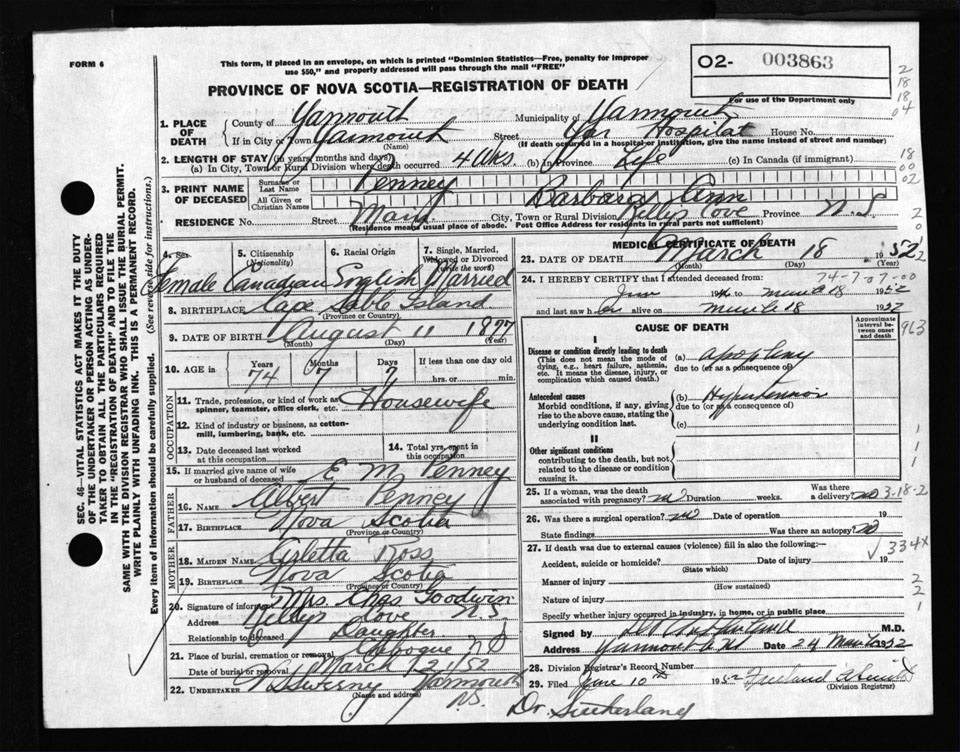 FORM 6
This form, if placed in an envelope, on which is printed "Dominion Statistics—Free, penalty for improper
use $50," and properly addressed will pass through the mail "FREE"
PROVINCE OF NOVA SCOTIA—REGISTRATION OF DEATH
02- 003863
For use of the Department only
1. PLACE OF DEATH
County of Yarmouth Municipality of Yarmouth
If in City or Town Yarmouth Street Yar Hospital House No.
(Name) (If death occurred in a hospital or institution, give the name instead of street and number)
2. LENGTH OF STAY (in years months and days)
(a) In City, Town or Rural Division where death occurred 4 Wks (b) in Province Life (c) In Canada (if immigrant)
3. PRINT NAME OF DECEASED
Surname or Last Name Penney
All Given or Christian Names Barbara Ann
RESIDENCE No. Street Main City, Town or Rural Division Kellys Cove Province N.S.
(Residence means usual place of abode. Post Office Address for residents in rural parts not sufficient)
4. Sex Female
5. Citizenship (Nationality) Canadian
6. Racial Origin English
7. Single, Married, Widowed or Divorced (write the word) Married
8. BIRTHPLACE Cape Sable Island
(Province or Country)
9. DATE OF BIRTH August 11 1877
(Month) (Day) (Year)
10. AGE in Years 74 Months 7 Days 7 If less than one day old
hrs. or min.
OCCUPATION
11. Trade, profession, or kind of work as spinner, teamster, office clerk, etc. Housewife
12. Kind of industry or business, as cotton-mill, lumbering, bank, etc.
13. Date deceased last worked at this occupation
14. Total yrs. spent in this occupation
15. If married give name of wife or husband of deceased E M Penney
FATHER
16. NAME Albert Penney
17. BIRTHPLACE Nova Scotia
(Province or Country)
MOTHER
18. MAIDEN NAME Arletta Ross
19. BIRTHPLACE Nova Scotia
(Province or Country)
20. Signature of informant Mrs. Chas Goodwin
Address Kellys Cove N.S
Relationship to deceased Daughter
21. Place of burial, cremation or removal Chebogue N S
Date of burial or removal March 21/52
22. UNDERTAKER Sweeny Yarmouth
(Name and address) N.S.
MEDICAL CERTIFICATE OF DEATH
23. DATE OF DEATH March 18 1952
(Month) (Day) (Year)
74-7-07-00
24. I HEREBY CERTIFY that I attended deceased from:
to March 18 1952
and last saw her alive on March 18 1952
CAUSE OF DEATH
Approximate interval between onset and death
I
Disease or condition directly leading to death (a) apoplexy
(This does not mean the mode of dying, e.g., heart failure, asthenia, etc. It means the disease, injury, or complication which caused death.) due to (or as a consequence of)
Antecedent causes (b) Hypertension
Morbid conditions, if any, giving rise to the above cause, stating the underlying condition last. due to (or as a consequence of)
(c)
II
Other significant conditions
contributing to the death, but not related to the disease or condition causing it.
25. If a woman, was the death associated with pregnancy? no Duration weeks. Was there a delivery? no
3-18-2
26. Was there a surgical operation? no Date of operation 19
State findings Was there an autopsy? no
27. If death was due to external causes (violence) fill in also the following:— 334x
Accident, suicide or homicide? Date of injury 19
(State which)
Manner of injury
(How sustained)
Nature of injury
Specify whether injury occurred in industry, in home, or in public place
Signed by M.D.
Address Yarmouth Date 24 March 1952
28. Division Registrar's Record Number
29. Filed June 10th 1952
(Division Registrar)
Dr. Sutherland
SEC. 46—VITAL STATISTICS ACT MAKES IT THE DUTY
OF THE UNDERTAKER OR PERSON ACTING AS UNDER-
TAKER TO OBTAIN ALL THE PARTICULARS REQUIRED
IN THE "REGISTRATION OF DEATH" AND TO FILE THE
SAME WITH THE DIVISION REGISTRAR WHO SHALL ISSUE THE BURIAL PERMIT.
WRITE PLAINLY WITH UNFADING INK. THIS IS A PERMANENT RECORD.
Every item of information should be carefully supplied. (See reverse side for instructions.)